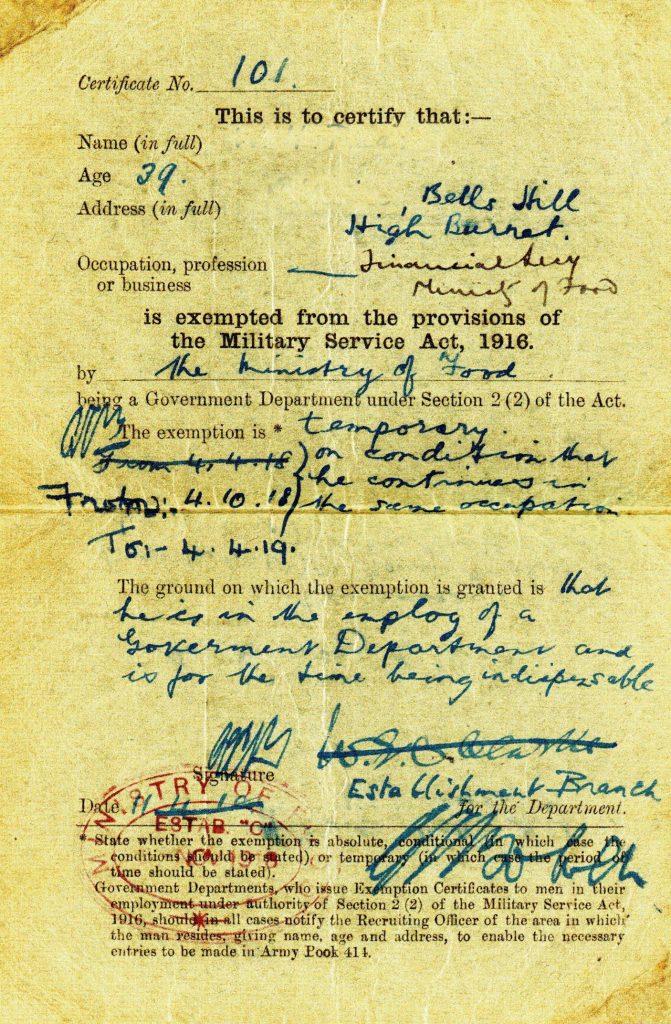 Certificate No. 101.
This is to certify that:—
Name (in full)
Age 39.
Address (in full)
Bells Hill
High Barnet.
Occupation, profession
or business
Financial Secy
Ministry of Food
is exempted from the provisions of
the Military Service Act, 1916.
by the Ministry of Food
being a Government Department under Section 2 (2) of the Act.
The exemption is * temporary.
From 4.4.18 on condition that
From:- 4.10.18 he continues in
the same occupation
To:- 4.4.19.
The ground on which the exemption is granted is that
he is in the employ of a
Goverment Department and
is for the time being indispensable
Signature
Establishment Branch
Date 11 4 18 for the Department.
MINISTRY OF
ESTAB. "C"
* State whether the exemption is absolute, conditional (in which case the
conditions should be stated), or temporary (in which case the period of
time should be stated).
Government Departments, who issue Exemption Certificates to men in their
employment under authority of Section 2 (2) of the Military Service Act,
1916, should in all cases notify the Recruiting Officer of the area in which
the man resides, giving name, age and address, to enable the necessary
entries to be made in Army Book 414.